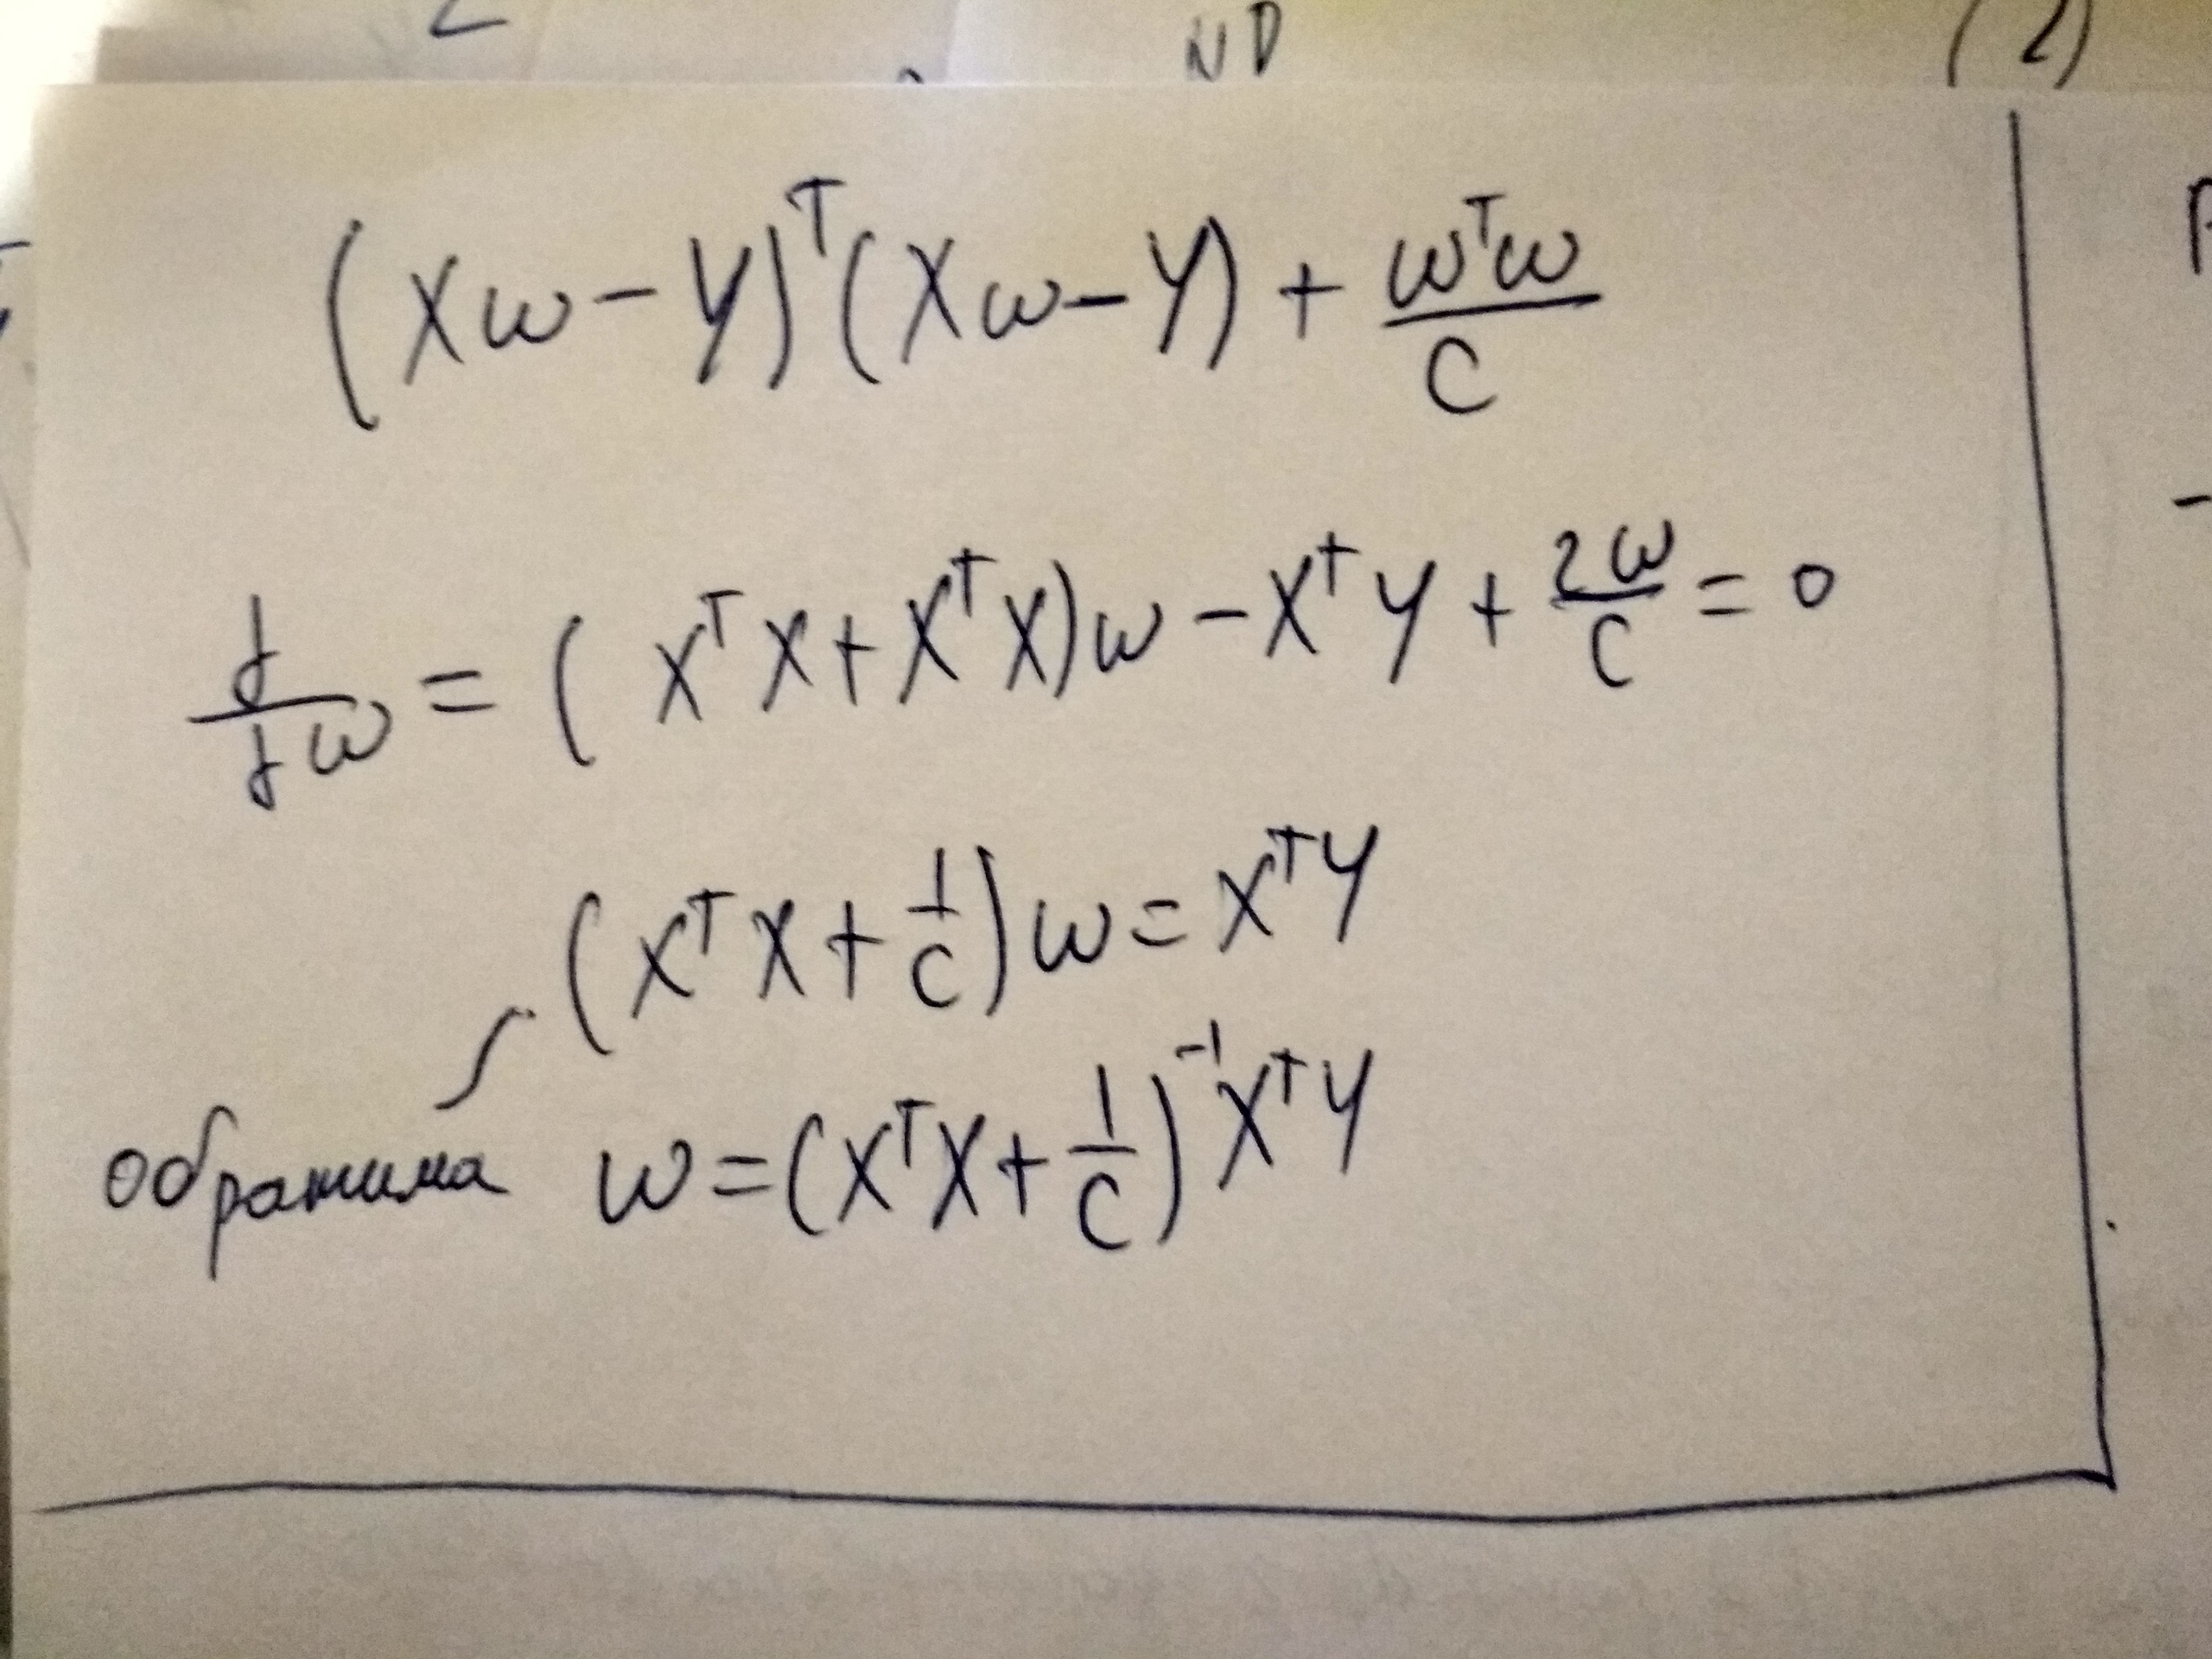 ND
(2)
(Xω-Y)ᵀ(Xω-Y) + ωᵀω/C
d/dω = (XᵀX + XᵀX)ω - XᵀY + 2ω/C = 0
(XᵀX + 1/C)ω = XᵀY
обратима ω = (XᵀX + 1/C)⁻¹XᵀY